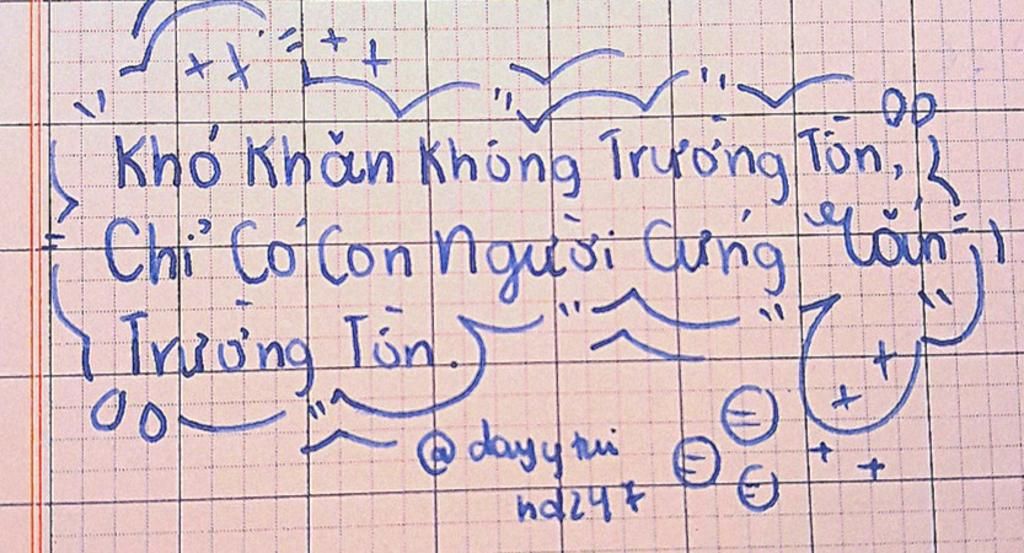 Khó Khăn Không Trường Tồn,
Chỉ Có Con Người Cứng Rắn
Trường Tồn.
@dayy tui
nd247